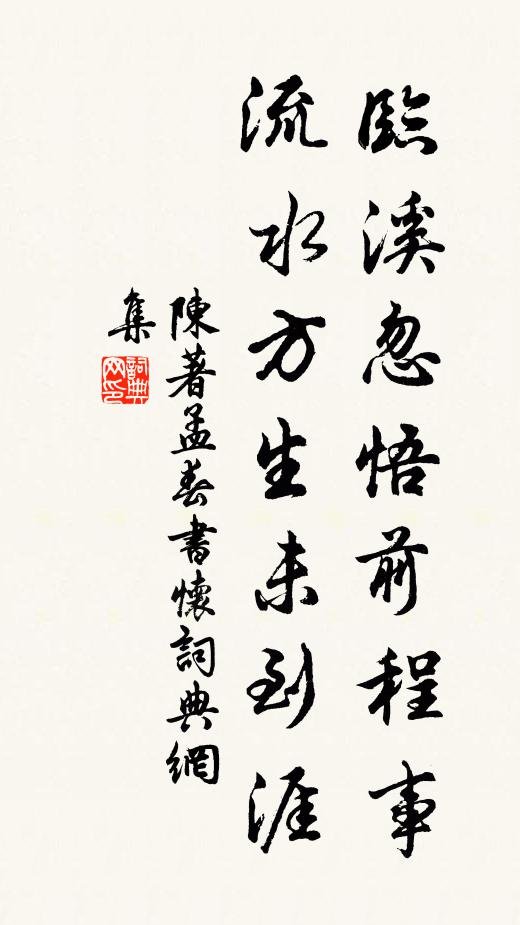 臨溪忽悟前程事
流水方生未到涯
陳著孟春書懷詞典網
集
詞典
网印